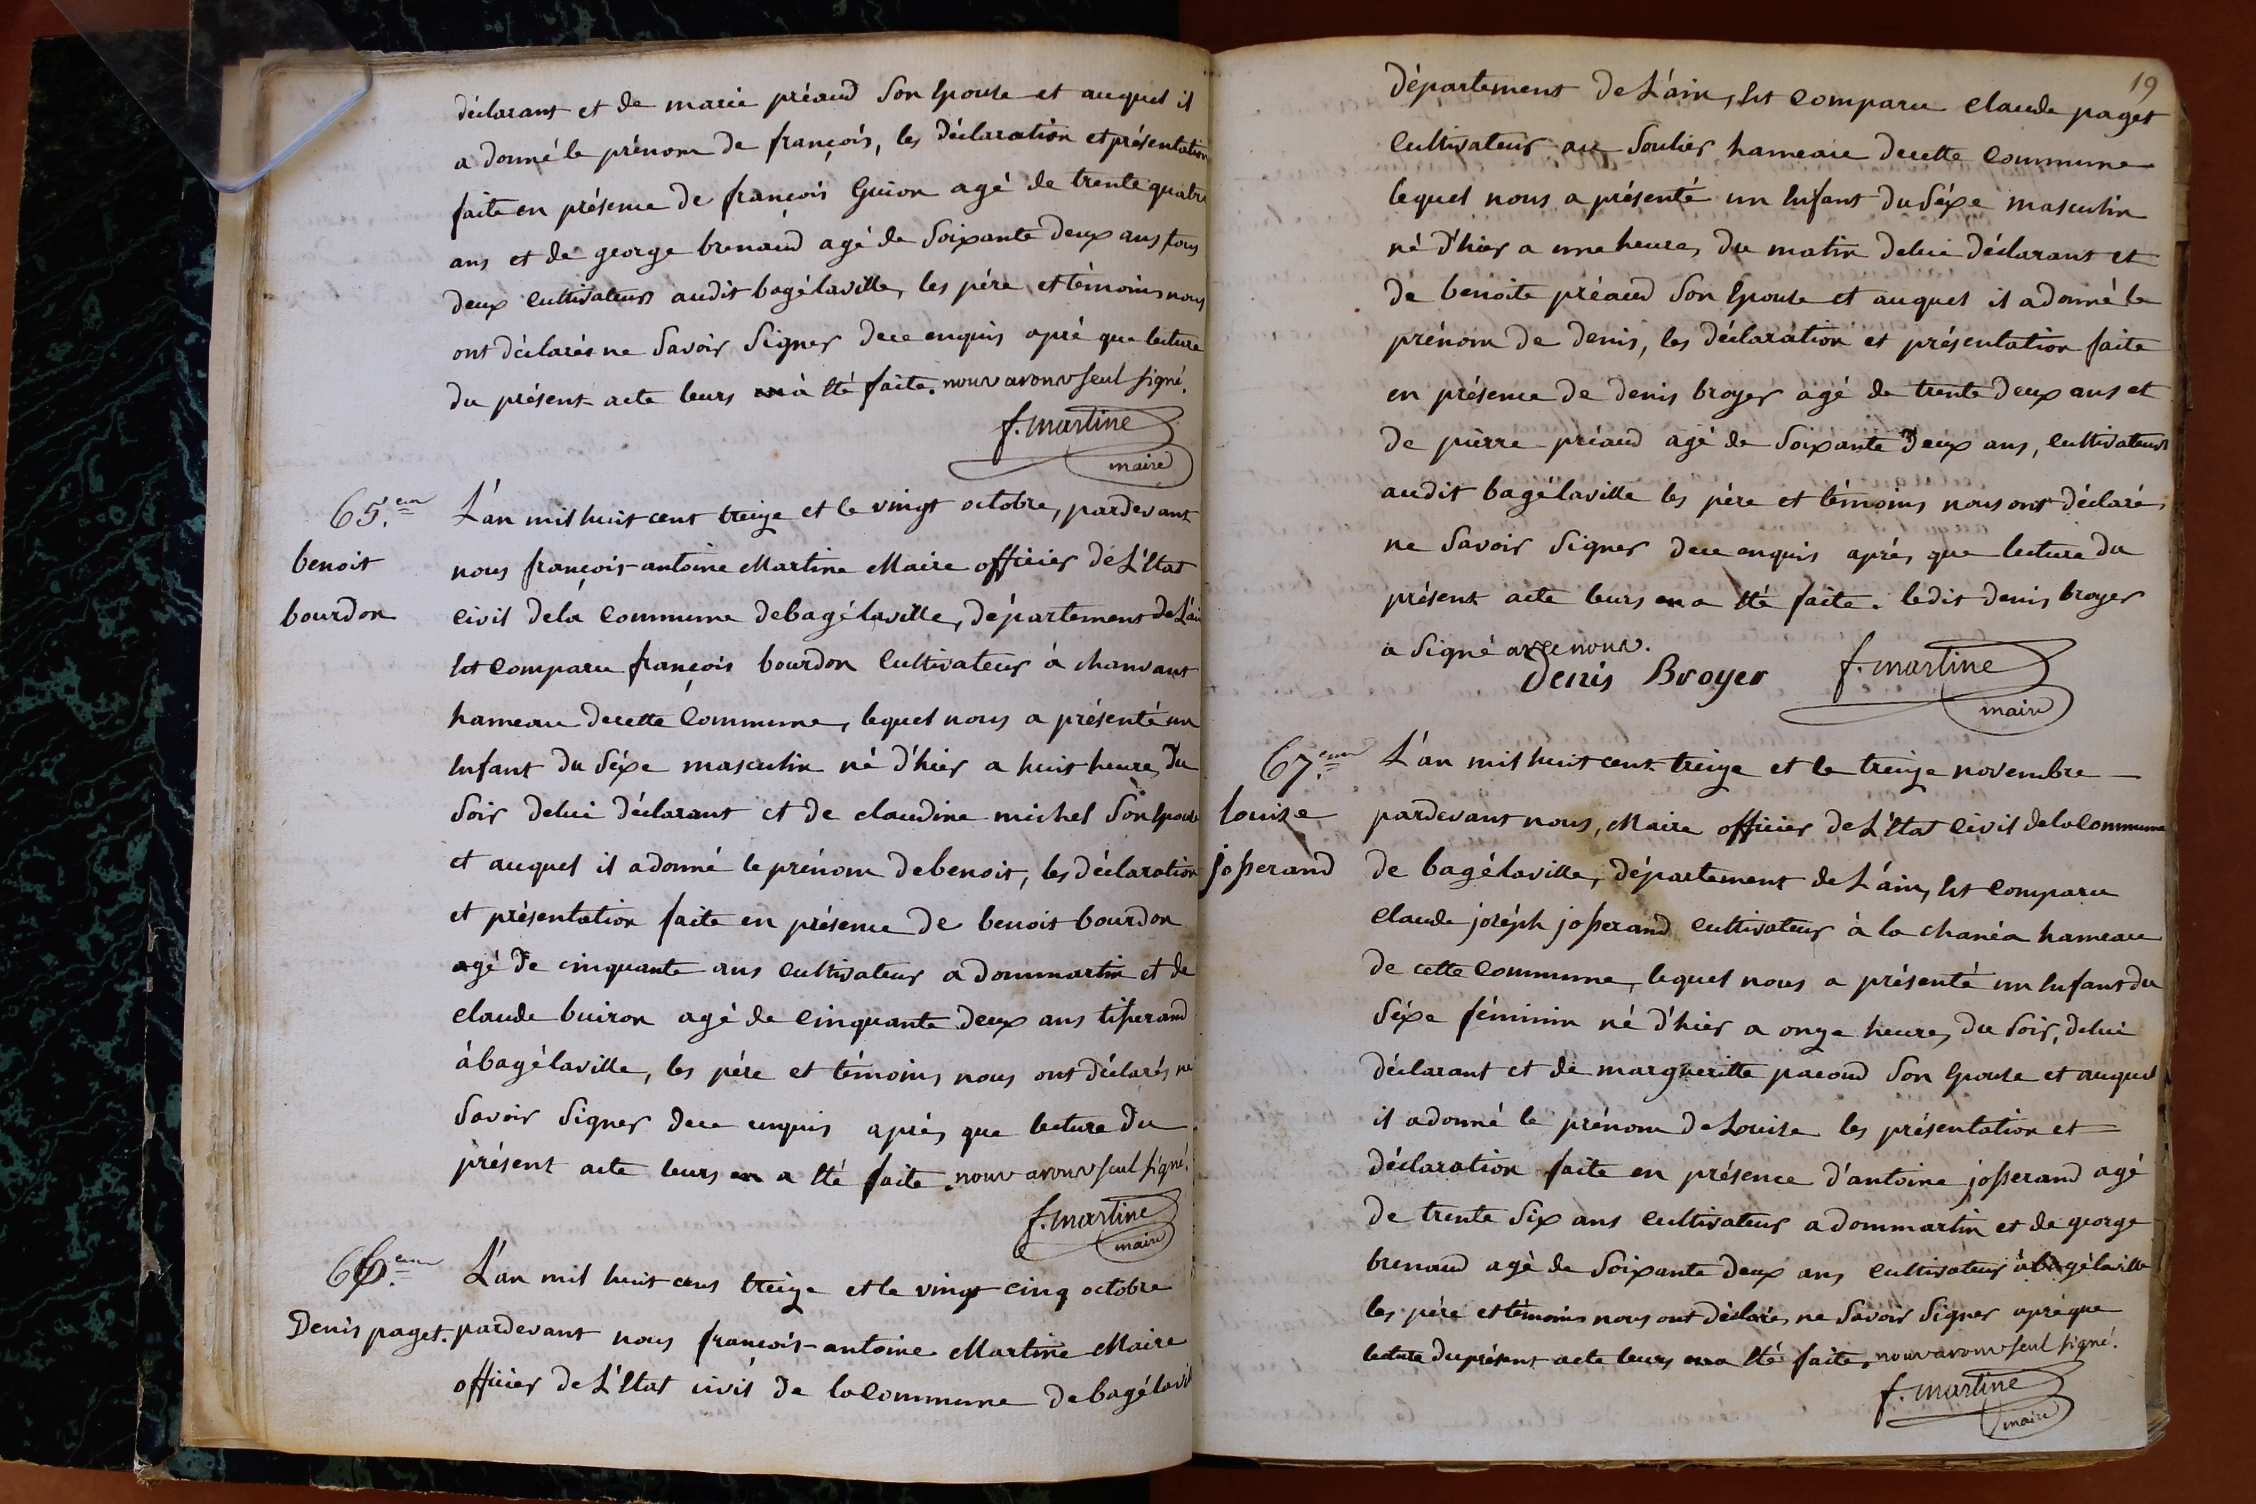 déclarant et de marie préaud Son Epouse et auquel il
a donné le prénom de françois, les déclaration et présentation
faite en présence de françois Guion agé de trente quatre
ans et de george brenaud agé de Soixante deux ans tous
deux Cultivateurs audit bagélaville, les pére et témoins nous
ont déclarés ne Savoir Signer dece enquis apré que lecture
du présent acte leurs en à Eté faite. nous avons seul signé.
f. martine
maire
65.em
benoit
bourdon
L'an mil huit cent treize et le vingt octobre, pardevant
nous françois-antoine Martine Maire officier de L'Etat
Civil dela Commune debagélaville, département de L'ain
Est Comparu françois bourdon Cultivateur à chanvant
hameau decette Commune, lequel nous a présenté un
Enfant du Séxe masculin né d'hier a huit heures du
Soir delui déclarant et de claudine michel Son Epouse
et auquel il adonné le prénom debenoit, les déclaration
et présentation faite en présence de benoit bourdon
agé de cinquante ans cultivateur a dommartin et de
claude buiron agé de Cinquante deux ans tisserand
à bagélaville, les pére et témoins nous ont déclarés ne
Savoir Signer dece enquis aprés que lecture du
présent acte leurs en a Eté faite. nous avons seul signé.
f. martine
maire
66.em
Denis paget.
L'an mil huit cens treize et le vingt cinq octobre
pardevant nous françois-antoine Martine Maire
officier de L'Etat civil de la Commune de bagélavil
19
département de L'ain, Est Comparu claude paget
Cultivateur au Soulier hameau decette Commune
lequel nous a présenté un Enfant du Séxe masculin
né d'hier a une heures du matin delui déclarant et
de benoite préaud Son Epouse et auquel il a donné le
prénom de denis, les déclaration et présentation faite
en présence de denis broyer agé de trente deux ans et
de pierre préaud agé de Soixante deux ans, Cultivateurs
audit bagélaville les pére et témoins nous ont déclaré
ne Savoir Signer dece enquis aprés que lecture du
présent acte leurs en a Eté faite. ledit denis broyer
a Signé avec nous.
Denis Broyer f. martine
maire
67.em
louise
josserand
L'an mil huit cent treize et le treize novembre
pardevant nous, Maire officier de L'Etat Civil dela Commune
de bagélaville, département de L'ain, Est Comparu
Claude joséph josserand Cultivateur à la chanéa hameau
de cette Commune, lequel nous a présenté un Enfant du
Séxe féminin né d'hier a onze heures du Soir, delui
déclarant et de margueritte pacoud Son Epouse et auquel
il adonné le prénom de Louise les présentation et
déclaration faite en présence d'antoine josserand agé
de trente Six ans Cultivateur a dommartin et de george
brenaud agé de Soixante deux ans Cultivateur à bagélaville
les pére et témoins nous ont déclarés ne Savoir Signer apré que
lecture du présent acte leurs en a Eté faite, nous avons seul signé.
f. martine
maire